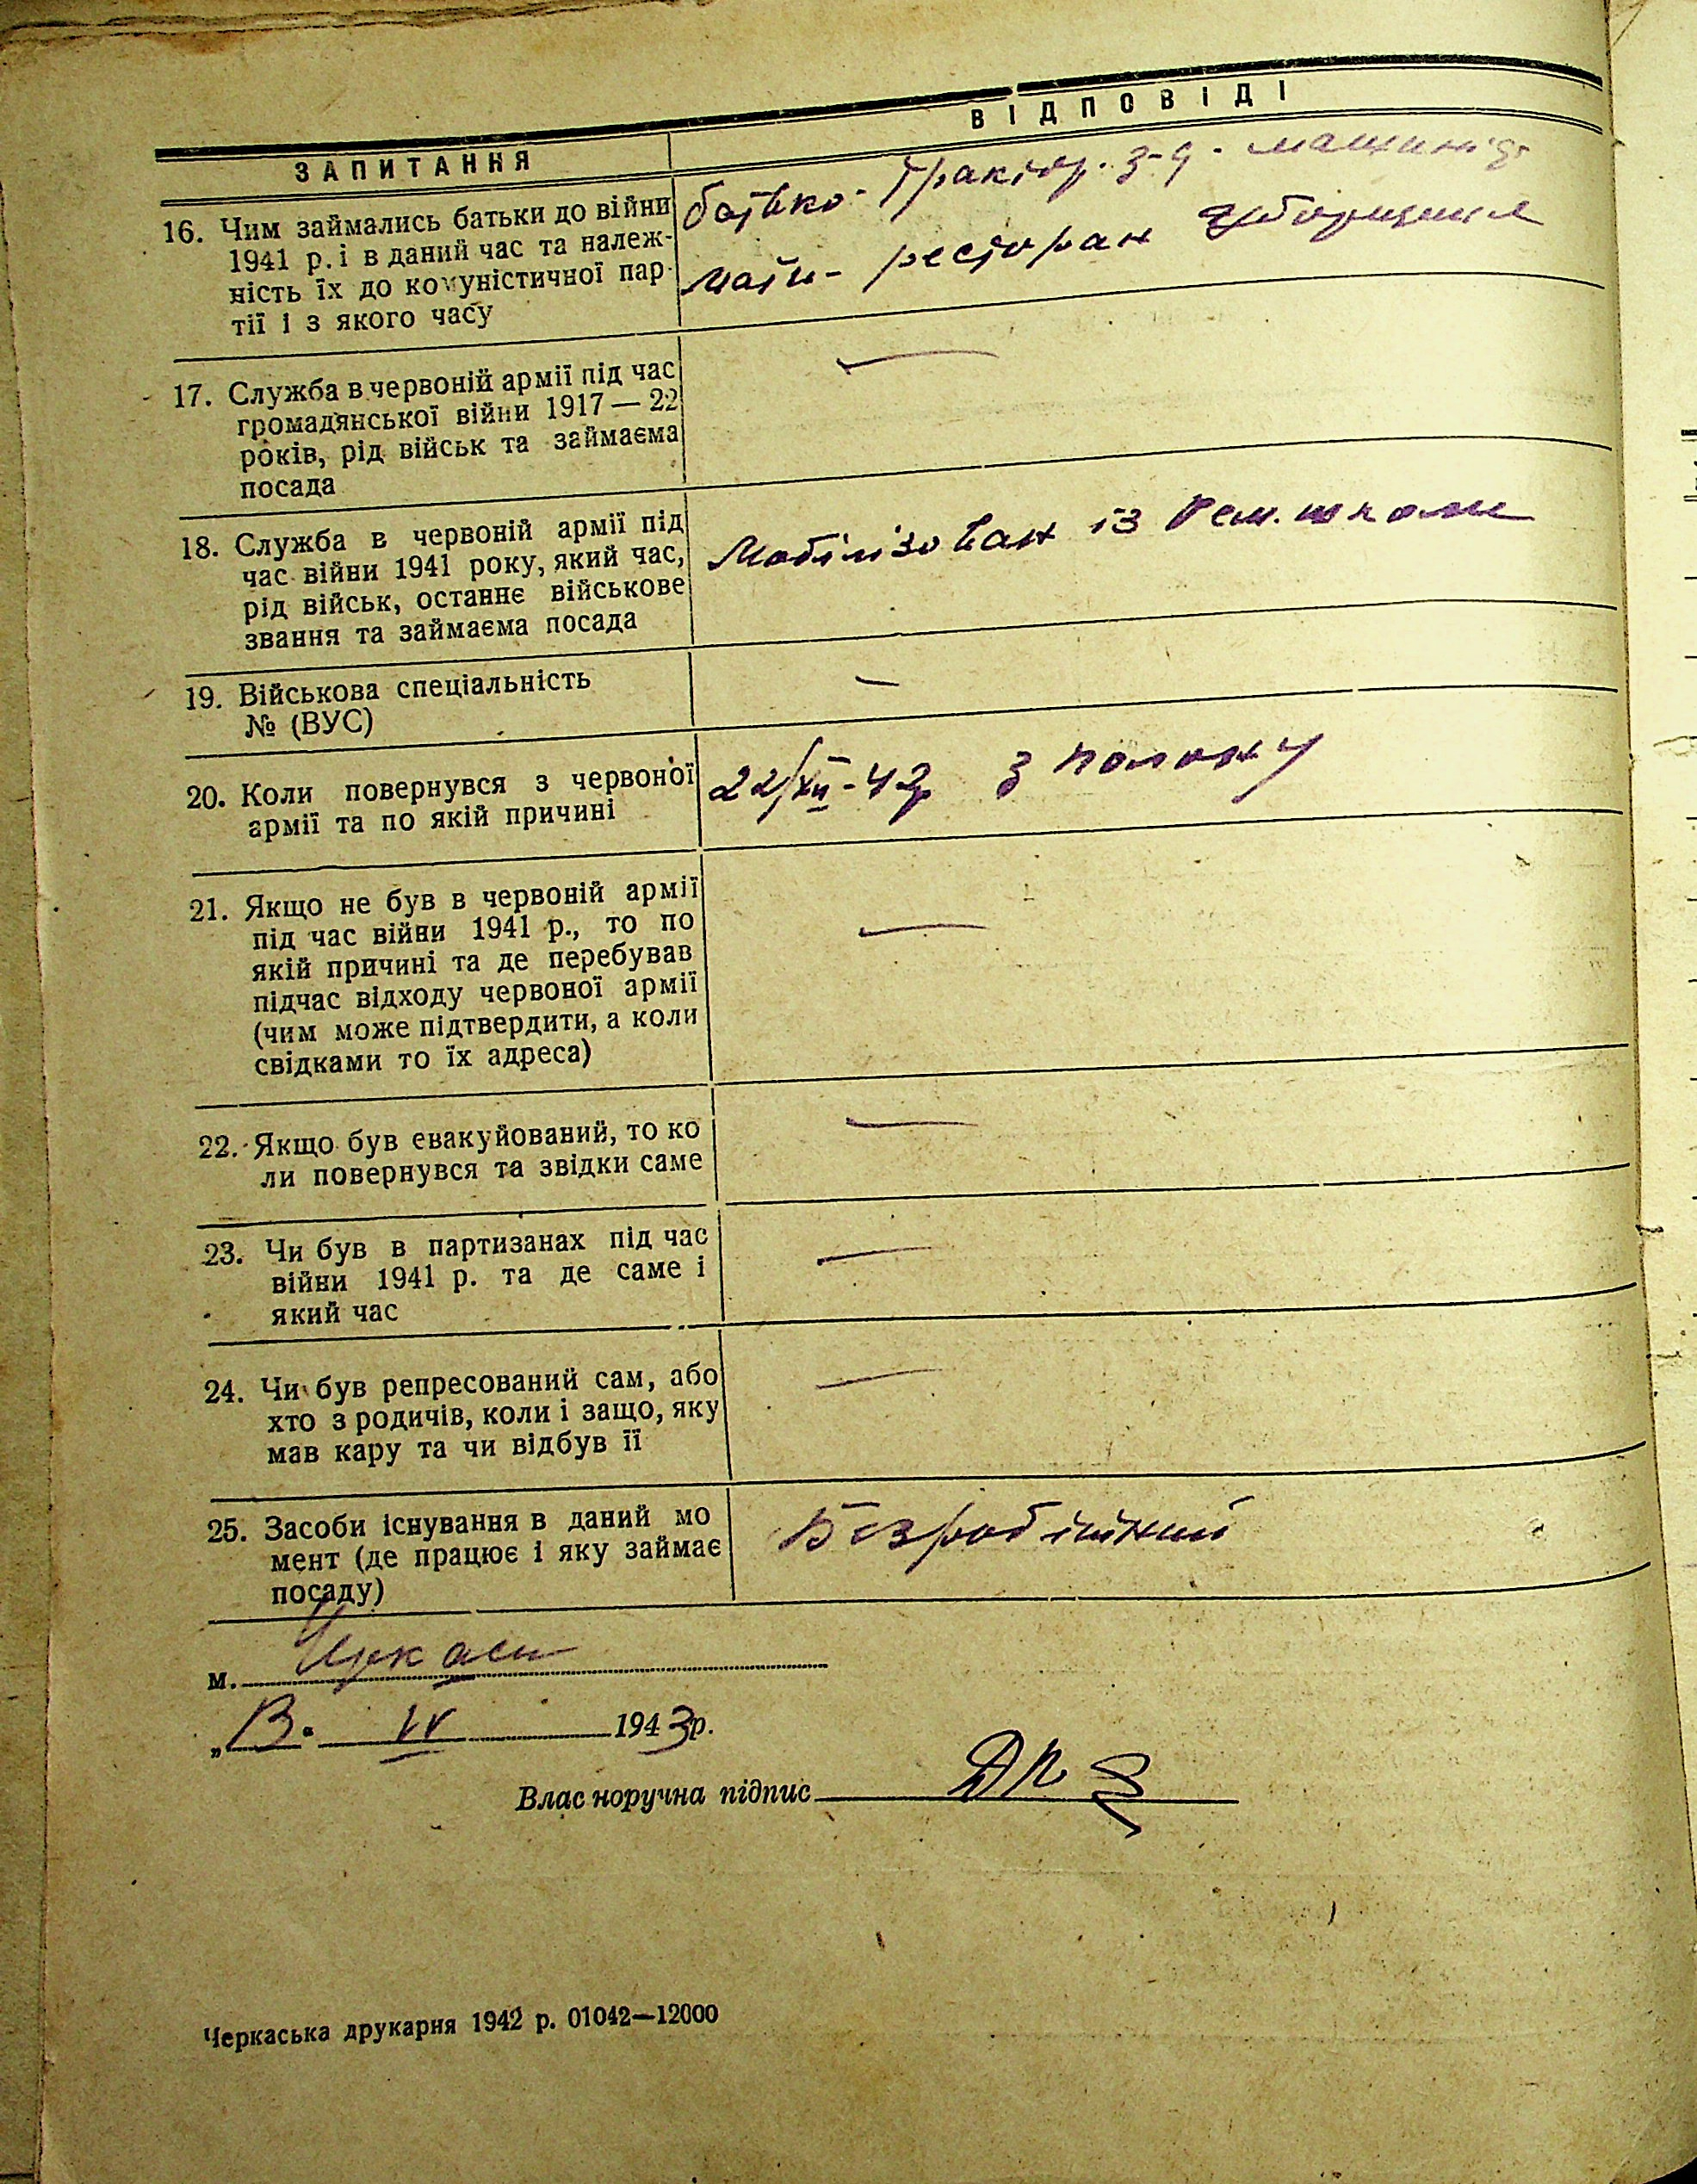 ЗАПИТАННЯ
ВІДПОВІДІ
16. Чим займались батьки до війни
1941 р. і в даний час та належ-
ність їх до комуністичної пар-
тії і з якого часу
батько - Трактор. з-д - машиніст
мати - ресторан уборщиця
17. Служба в червоній армії під час
громадянської війни 1917 — 22
років, рід військ та займаєма
посада
—
18. Служба в червоній армії під
час війни 1941 року, який час,
рід військ, останнє військове
звання та займаєма посада
Мобілізован із Рем. школи
19. Військова спеціальність
№ (ВУС)
—
20. Коли повернувся з червоної
армії та по якій причині
22/XII - 42р з полону
21. Якщо не був в червоній армії
під час війни 1941 р., то по
якій причині та де перебував
підчас відходу червоної армії
(чим може підтвердити, а коли
свідками то їх адреса)
—
22. Якщо був евакуйований, то ко
ли повернувся та звідки саме
—
23. Чи був в партизанах під час
війни 1941 р. та де саме і
який час
—
24. Чи був репресований сам, або
хто з родичів, коли і защо, яку
мав кару та чи відбув її
—
25. Засоби існування в даний мо
мент (де працює і яку займає
посаду)
Безробітний
м. Черкаси
„13. IV 1943р.
Влас норучна підпис
Черкаська друкарня 1942 р. 01042—12000